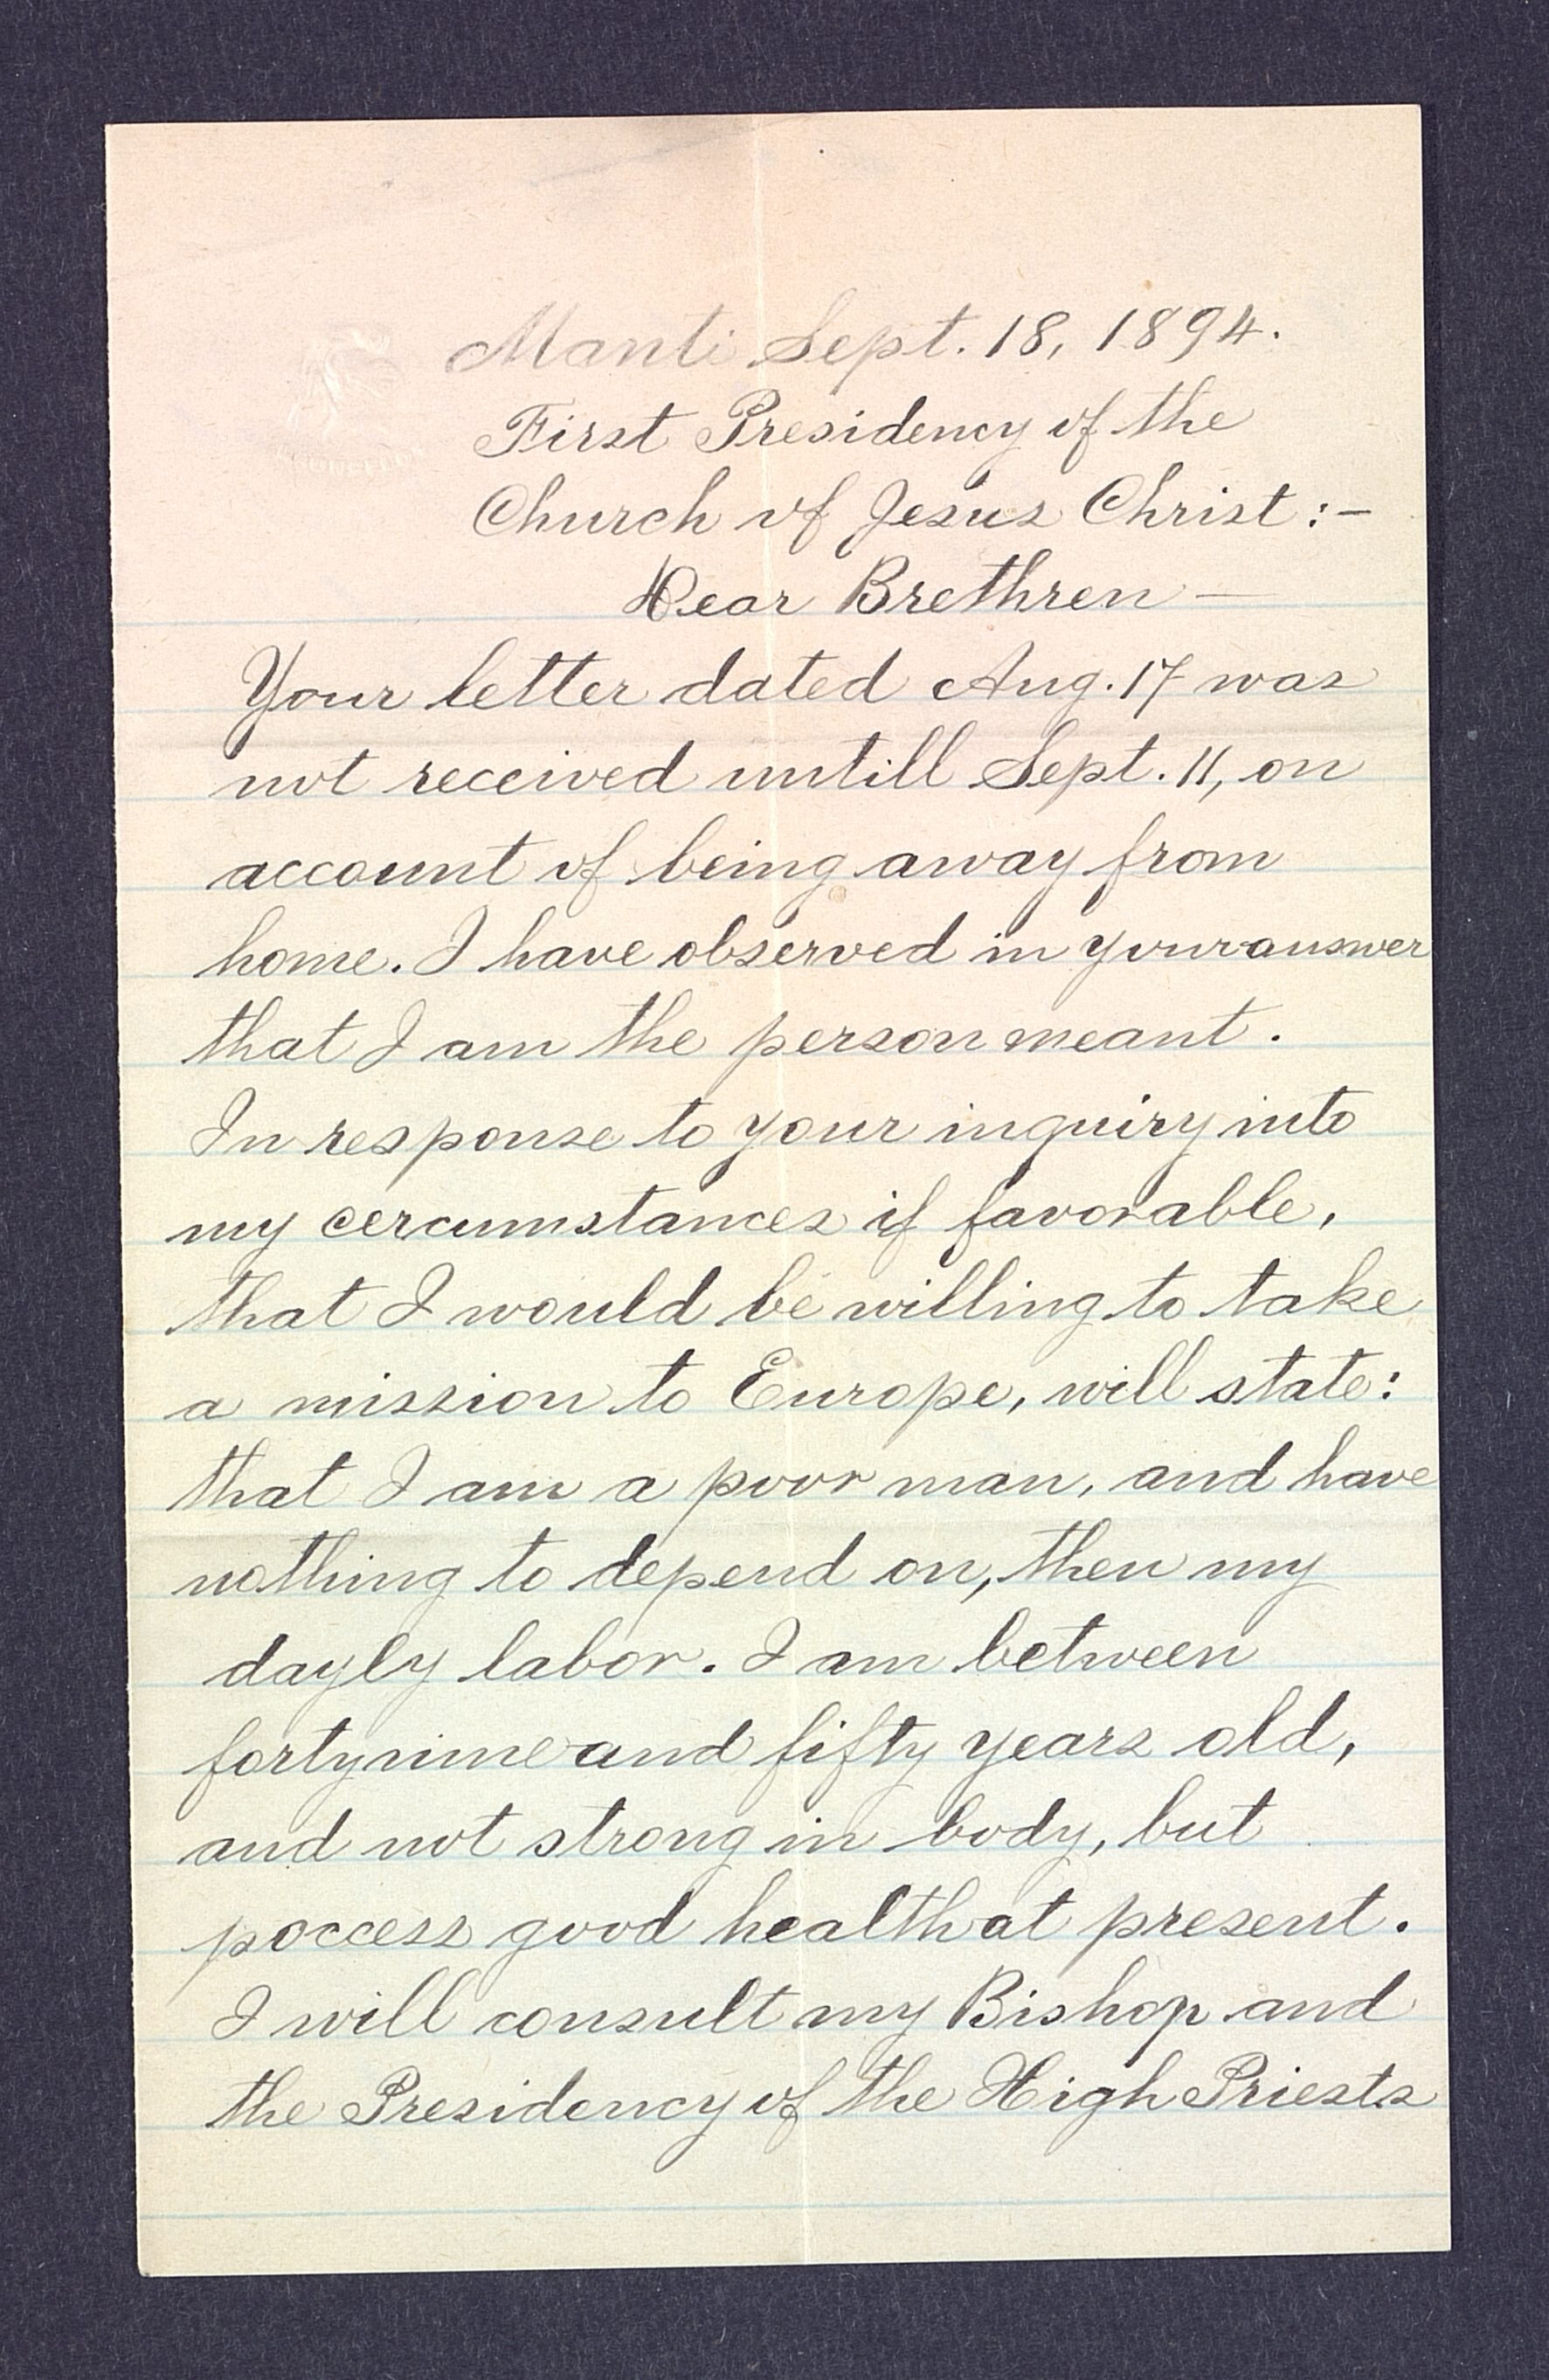 Manti Sept. 18, 1894.
First Presidency of the
Church of Jesus Christ:-
Dear Brethren —
Your letter dated Aug. 17 was
not received untill Sept. 11, on
account of being away from
home. I have observed in your answer
that I am the person meant.
In response to your inquiry into
my cercumstances if favorable,
that I would be willing to take
a mission to Europe, will state:
that I am a poor man, and have
nothing to depend on, then my
dayly labor. I am between
fortynine and fifty years old,
and not strong in body, but
poccess good health at present.
I will consult my Bishop and
the Presidency of the High Priests